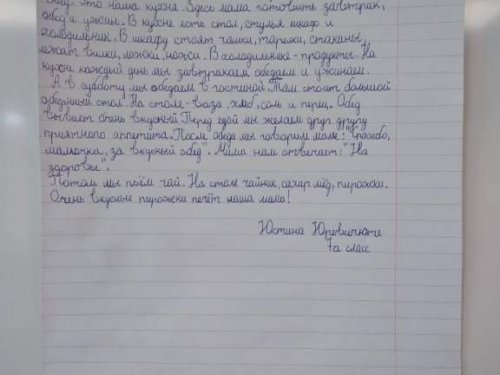 это наша кухня. Здесь мама готовит завтрак,
обед и ужин. В кухне есть стол, стулья, шкаф и
холодильник. В шкафу стоят чашки, тарелки, стаканы,
лежат вилки, ложки, ножи. В холодильнике - продукты. На
кухне каждый день мы завтракаем обедаем и ужинаем.
А в субботу мы обедаем в гостиной. Там стоит большой
обеденный стол. На столе - ваза, хлеб, соль и перец. Обед
бывает очень вкусный. Перед едой мы желаем друг другу
приятного аппетита. После обеда мы говорим маме: "Спасибо,
мамочка, за вкусный обед". Мама нам отвечает: "На
здоровье".
Потом мы поём чай. На столе чайник, сахар, мёд, пирожки.
Очень вкусные пирожки печёт наша мама!
Юстина
7а класс